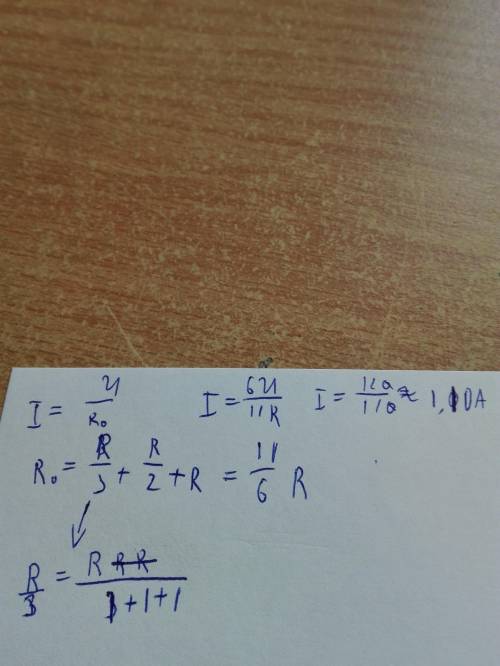 I = U/R₀   I = 6U/11R   I = 120/110 ≈ 1,10A
R₀ = R/3 + R/2 + R = 11/6 R
R/3 = R/1+1+1